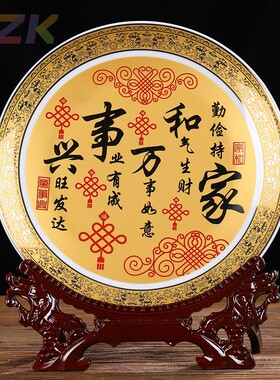 ZK
家勤俭持
和气生财
万事如意
事业有成
兴旺发达